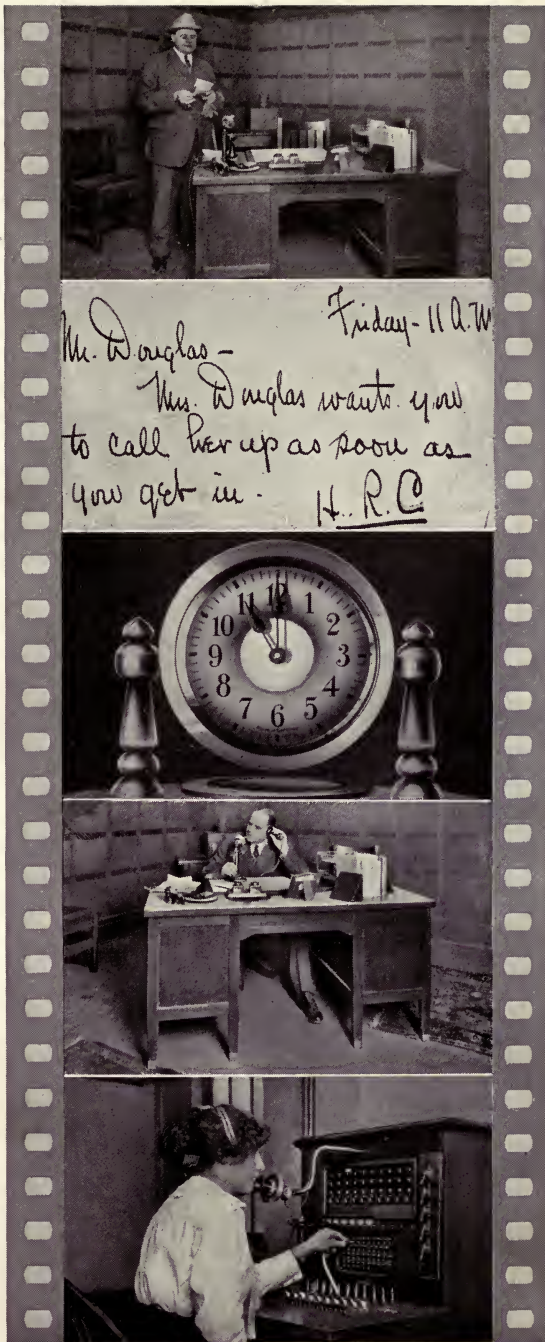 Friday - 11 A.M
Mr. Douglas -
Mrs. Douglas wants you
to call her up as soon as
you get in. H. R. C
12
11 1
10 2
9 3
8 4
7 5
6